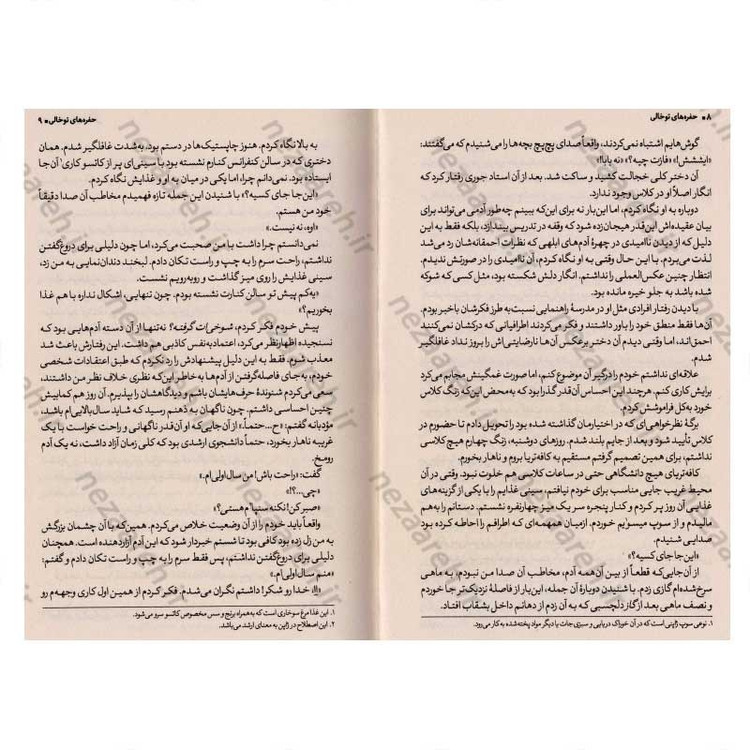 ۸ • حفره‌های توخالی
گوش‌هایم اشتباه نمی‌کردند، واقعاً صدای پچ‌پچ بچه‌ها را می‌شنیدم که می‌گفتند:
«ایششش!» «فازت چیه؟» «نه بابا!»
آن دختر کلی خجالت کشید و ساکت شد. بعد از آن استاد جوری رفتار کرد که
انگار اصلاً او در کلاس وجود ندارد.
دوباره به او نگاه کردم، اما این‌بار نه برای این‌که ببینم چه‌طور آدمی می‌تواند برای
بیان عقیده‌اش این‌قدر هیجان‌زده شود که وقفه در تدریس بیندازد، بلکه فقط به این
دلیل که از دیدن ناامیدی در چهرهٔ آدم‌های ابلهی که نظرات احمقانه‌شان رد می‌شد
لذت می‌بردم. با این حال وقتی به او نگاه کردم، آن ناامیدی را در صورتش ندیدم.
انتظار چنین عکس‌العملی را نداشتم. انگار دلش شکسته بود، مثل کسی که شوکه
شده باشد به جلو خیره مانده بود.
با دیدن رفتار افرادی مثل او در مدرسهٔ راهنمایی نسبت به طرز فکرشان باخبر بودم.
آن‌ها فقط منطق خود را باور داشتند و فکر می‌کردند اطرافیانی که درکشان نمی‌کنند
احمق‌اند، اما وقتی دیدم آن دختر برعکس آن‌ها نارضایتی‌اش را بروز نداد غافلگیر
شدم.
علاقه‌ای نداشتم خودم را درگیر آن موضوع کنم، اما صورت غمگینش مجابم می‌کرد
برایش کاری کنم. هرچند این احساس آن‌قدر گذرا بود که به‌محض این‌که زنگ کلاس
خورد به‌کل فراموشش کردم.
برگهٔ نظرخواهی‌ای که در اختیارمان گذاشته شده بود را تحویل دادم تا حضورم در
کلاس تأیید شود و بعد از جایم بلند شدم. روزهای دوشنبه، زنگ چهارم هیچ کلاسی
نداشتم، برای همین تصمیم گرفتم مستقیم به کافه‌تریا بروم و ناهار بخورم.
کافه‌تریای هیچ دانشگاهی حتی در ساعات کلاسی هم خلوت نبود. وقتی در آن
محیط غریب جایی مناسب برای خودم نیافتم، سینی غذایم را با یکی از گزینه‌های
غذایی آن روز پر کردم و کنار پنجره سر یک میز چهارنفره نشستم. دستانم را به‌هم
مالیدم و از سوپ میسو‌یم خوردم. ازمیان همهمه‌ای که اطرافم را احاطه کرده بود
صدایی شنیدم.
«این‌جا جای کسیه؟»
از آن‌جایی‌که قطعاً از بین آن همه آدم، مخاطب آن صدا من نبودم، به ماهی
سرخ‌شده‌ام گازی زدم. با شنیدن دوبارهٔ آن جمله، این‌بار از فاصلهٔ نزدیک‌تر جا خوردم
و نصف ماهی بعد از گاز دلچسبی که به آن زدم از دهانم داخل بشقاب افتاد.
۱. نوعی سوپ ژاپنی است که در آن خوراک دریایی و سبزی‌جات یا دیگر مواد پخته‌شده به کار می‌رود.
حفره‌های توخالی • ۹
به بالا نگاه کردم. هنوز چاپستیک‌ها در دستم بود. به‌شدت غافلگیر شدم. همان
دختری که در سالن کنفرانس کنارم نشسته بود با سینی‌ای پر از کاتسو کاری۱ آن‌جا
ایستاده بود. نمی‌دانم چرا، اما یکی در میان به او و غذایش نگاه کردم.
«این‌جا جای کسیه؟» با شنیدن این جمله تازه فهمیدم مخاطب آن صدا دقیقاً
خود من هستم.
«اوه، نه نیست.»
نمی‌دانستم چرا داشت با من صحبت می‌کرد، اما چون دلیلی برای دروغ‌گفتن
نداشتم، راحت سرم را به چپ و راست تکان دادم. لبخند دندان‌نمایی به من زد،
سینی غذایش را روی میز گذاشت و روبه‌رویم نشست.
«یه‌کم پیش تو سالن کنارت نشسته بودم. چون تنهایی، اشکال نداره با هم غذا
بخوریم؟»
پیش خودم فکر کردم، شوخی‌ات گرفته؟ نه‌تنها از آن دسته آدم‌هایی بود که
نسنجیده اظهارنظر می‌کرد، اعتمادبه‌نفس کاذبی هم داشت. این رفتارش باعث شد
معذب شوم. فقط به این دلیل پیشنهادش را رد نکردم که طبق اعتقادات شخصی
خودم، به‌جای فاصله‌گرفتن از آدم‌ها به‌خاطر این‌که نظری خلاف نظر من داشتند،
سعی می‌کردم شنوندهٔ حرف‌هایشان باشم و دیدگاهشان را بپذیرم. آن روز هم کمابیش
چنین احساسی داشتم. چون ناگهان به ذهنم رسید که شاید سال‌بالایی‌ام باشد،
مؤدبانه گفتم: «ح...حتماً.» از آن‌جایی که او آن‌قدر ناگهانی و راحت خواست با یک
غریبه ناهار بخورد، حتماً دانشجوی ارشدی بود که کلی زمان آزاد داشت، نه یک آدم
رومخ.
گفت: «راحت باش! من سال‌اولی‌ام.»
«چی...؟!»
«صبر کن! نکنه سنپا۲م هستی؟»
واقعاً باید خودم را از آن وضعیت خلاص می‌کردم. همین‌که با آن چشمان بزرگش
به من زل زده بود کافی بود تا ششتم خبردار شود که این آدم آزاردهنده است. همچنان
دلیلی برای دروغ‌گفتن نداشتم، پس فقط سرم را به چپ و راست تکان دادم و گفتم:
«منم سال‌اولی‌ام.»
«اِ!، خدا رو شکر! داشتم نگران می‌شدم. فکر کردم از همین اول کاری وجهه‌م رو
۱. این غذا مرغ سوخاری است که به‌همراه برنج و سس مخصوص کاتسو سرو می‌شود.
۲. این اصطلاح در ژاپن به معنای ارشد می‌باشد.
nezaareh.ir